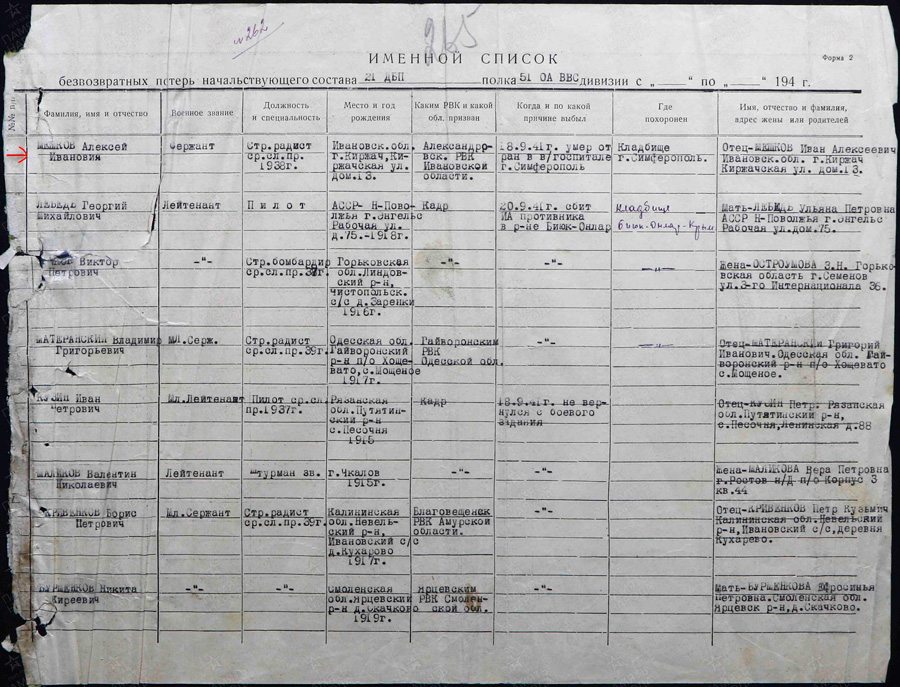 №262
265
ИМЕННОЙ СПИСОК
Форма 2
безвозвратных потерь начальствующего состава 21 ДБП полка 51 ОА ВВС дивизии с „ — “ по „ — “ 194 г.
№№ п/п
Фамилия, имя и отчество
Военное звание
Должность
и специальность
Место и год
рождения
Каким РВК и какой
обл. призван
Когда и по какой
причине выбыл
Где
похоронен
Имя, отчество и фамилия,
адрес жены или родителей
МЕШКОВ Алексей
Иванович
Сержант
Стр.радист
ср.сл.пр.
1938г.
Ивановск.обл.
г.Киржач,Кир-
жачская ул.
дом.13.
Александро-
вск. РВК
Ивановской
области.
18.9.41г. умер от
ран в в/госпитале
г.Симферополь
Кладбище
г.Симферополь.
Отец-МЕШКОВ Иван Алексеевич
Ивановск.обл. г.Киржач
Киржачская ул. дом.13.
ЛЕБЕДЬ Георгий
Михайлович
Лейтенант
Пилот
АССР- Н-Пово-
лжья г.Энгельс
Рабочая ул.
д.75.-1918г.
Кадр
20.9.41г. сбит
ИА противника
в р-не Биюк-Онлар
Кладбище
Биюк-Онлар-Крым
Мать-ЛЕБЕДЬ Ульяна Петровна
АССР Н-Поволжья г.Энгельс
Рабочая ул.дом.75.
Виктор
Петрович
-"-
Стр.бомбардир
ср.сл.пр.37г.
Горьковская
обл.Линдов-
ский р-н,
Чистопольск.
с/с д.Заренки
1916г.
-"-
-"-
-"-
Жена-ОСТРОУМОВА З.Н. Горько-
вская область г.Семенов
ул.3-го Интернационала 36.
МАТЕРАНСКИЙ Владимир
Григорьевич
Мл.Серж.
Стр.радист
ср.сл.пр.39г.
Одесская обл.
Гайворонский
р-н п/о Хоще-
вато,с.Мощеное
1917г.
Гайворонским
РВК
Одесской обл.
-"-
-"-
Отец-МАТЕРАНСКИЙ Григорий
Иванович.Одесская обл. Гай-
воронский р-н п/о Хощевато
с.Мощеное.
КУЗИН Иван
Петрович
Мл.Лейтенант
Пилот ср.сл.
пр.1937г.
Рязанская
обл.Путятин-
ский р-н
с.Песочня
1915
Кадр
18.9.41г. не вер-
нулся с боевого
задания
Отец-КУЗИН Петр. Рязанская
обл.Путятинский р-н,
с.Песочня,Ленинская д.88
МАЛИКОВ Валентин
Николаевич
Лейтенант
Штурман зв.
г.Чкалов
1915г.
-"-
-"-
Жена-МАЛИКОВА Вера Петровна
г.Ростов н/Д п/о Корпус 3
кв.44
КРИВЕНКОВ Борис
Петрович
Мл.Сержант
Стр.радист
ср.сл.пр.39г.
Калининская
обл.Невель-
ский р-н.
Ивановский с/с
д.Кухарово
1917г.
Благовещенск
РВК Амурской
области.
-"-
Отец-КРИВЕНКОВ Петр Кузьмич
Калининская обл.Невельский
р-н,Ивановский с/с,деревня
Кухарево.
БУРШЕНКОВ Никита
Киреевич
-"-
-"-
Смоленская
обл.Ярцевский
р-н д.Скачково
1919г.
Ярцевским
РВК Смолен-
ской обл.
-"-
Мать-БУРШЕНКОВА Ефросинья
Петровна.Смоленская обл.
Ярцевск р-н,д.Скачково.